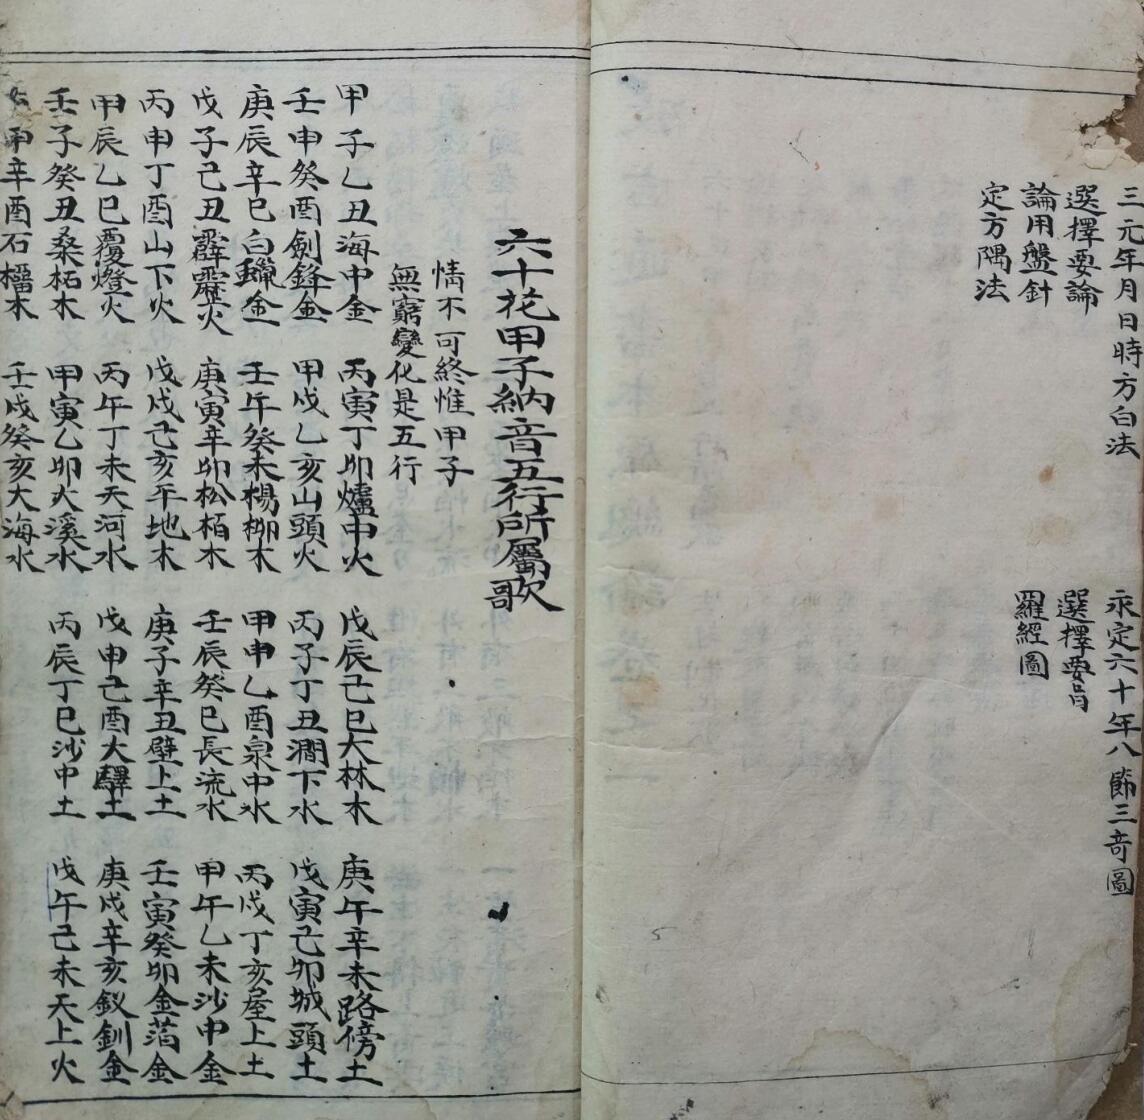 三元年月日時方白法 永定六十年八節三竒圖
選擇要論 選擇要旨
論用盤針 羅經圖
定方隅法
六十花甲子納音五行所屬歌
情不可終惟甲子
無窮變化是五行
甲子乙丑海中金 丙寅丁卯爐中火 戊辰己巳大林木 庚午辛未路傍土
壬申癸酉劍鋒金 甲戌乙亥山頭火 丙子丁丑澗下水 戊寅己卯城頭土
庚辰辛巳白鑞金 壬午癸未楊柳木 甲申乙酉泉中水 丙戌丁亥屋上土
戊子己丑霹靂火 庚寅辛卯松栢木 壬辰癸巳長流水 甲午乙未沙中金
丙申丁酉山下火 戊戌己亥平地木 庚子辛丑壁上土 壬寅癸卯金萡金
甲辰乙巳覆燈火 丙午丁未天河水 戊申己酉大驛土 庚戌辛亥釵釧金
壬子癸丑桑柘木 甲寅乙卯大溪水 丙辰丁巳沙中土 戊午己未天上火
申辛酉石橊木 壬戌癸亥大海水